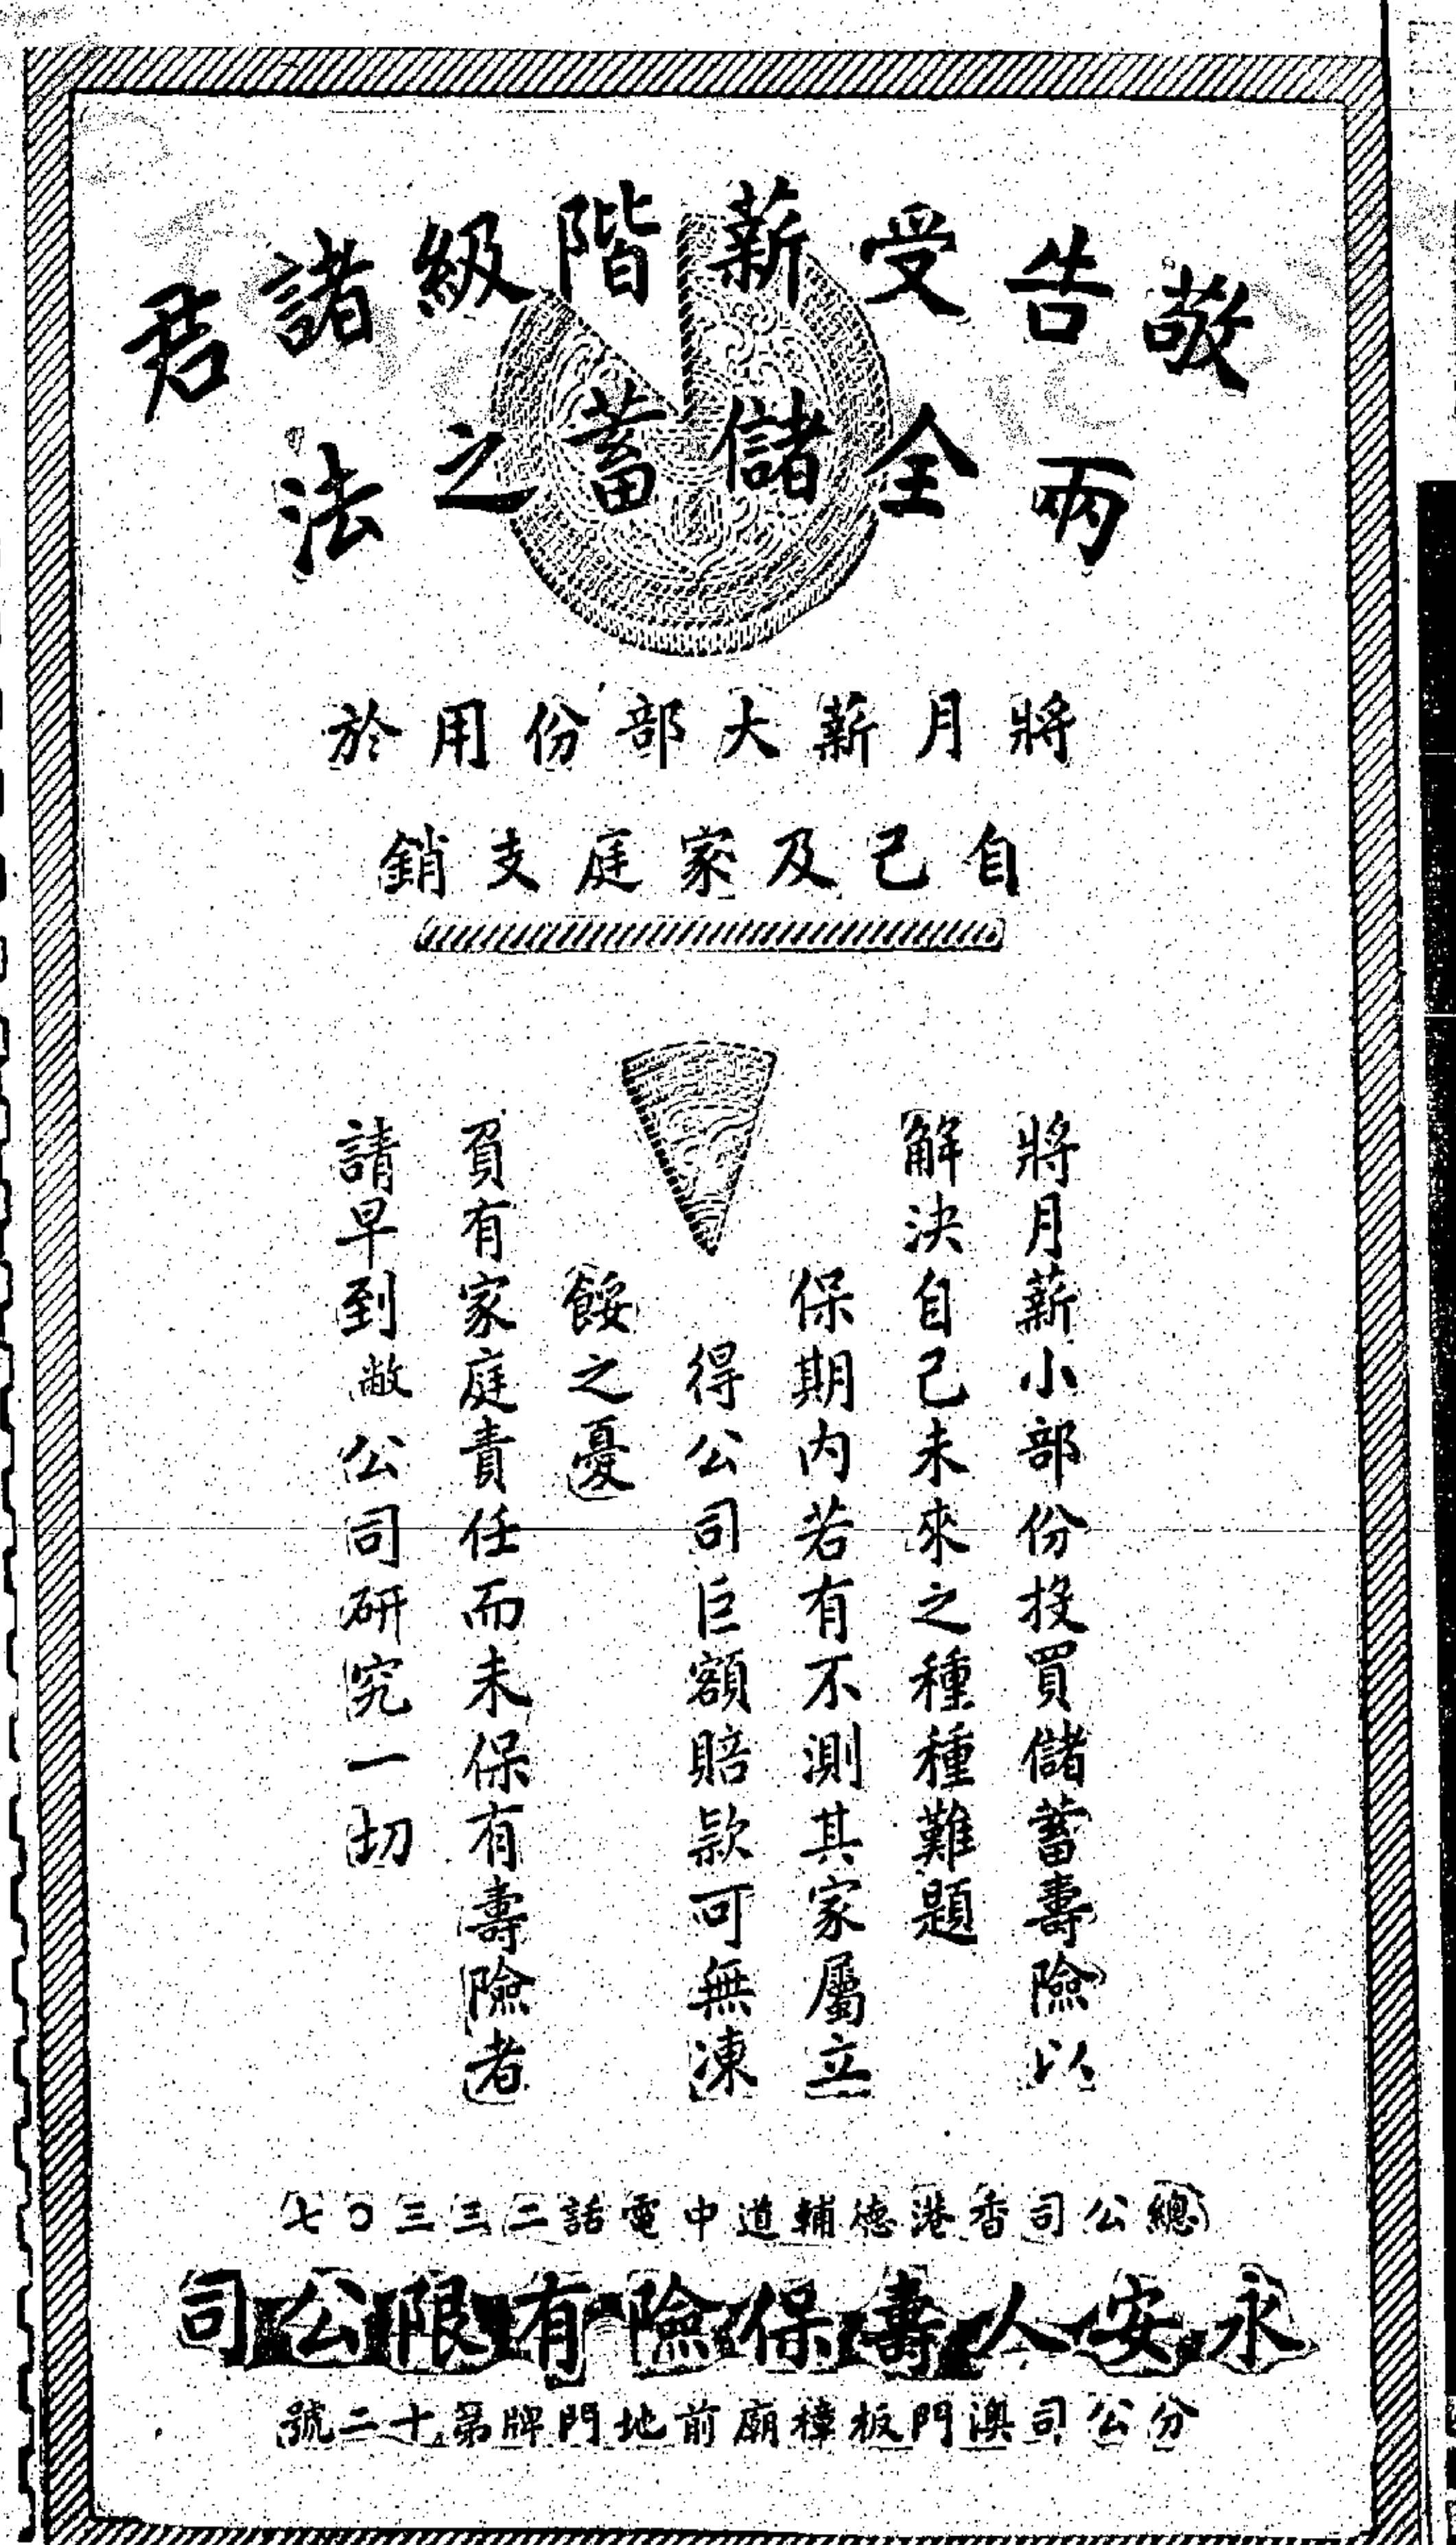 敬告受薪階級諸君
兩全儲蓄之法
將月薪大部份用於
自己及家庭支銷
將月薪小部份投買儲蓄壽險以
解決自己未來之種種難題
保期內若有不測其家屬立
得公司巨額賠款可無凍
餒之憂
負有家庭責任而未保有壽險者
請早到敝公司研究一切
總公司香港德輔道中電話二三三〇七
永安人壽保險有限公司
分公司澳門板樟廟前地門牌第十二號